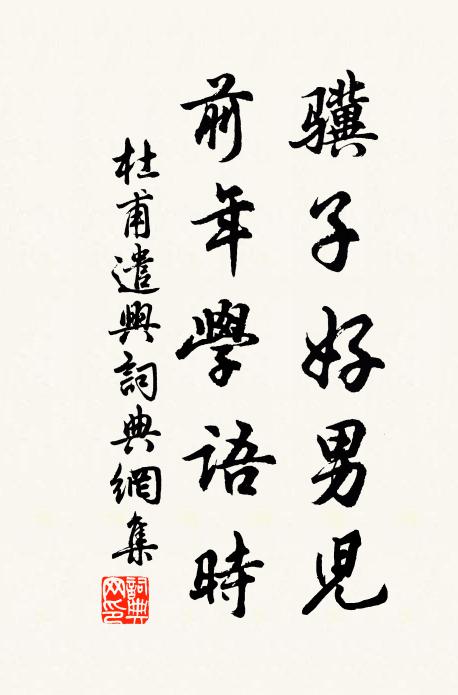 驥子好男児
前年學語時
杜甫遣興詞典網集
詞典網印